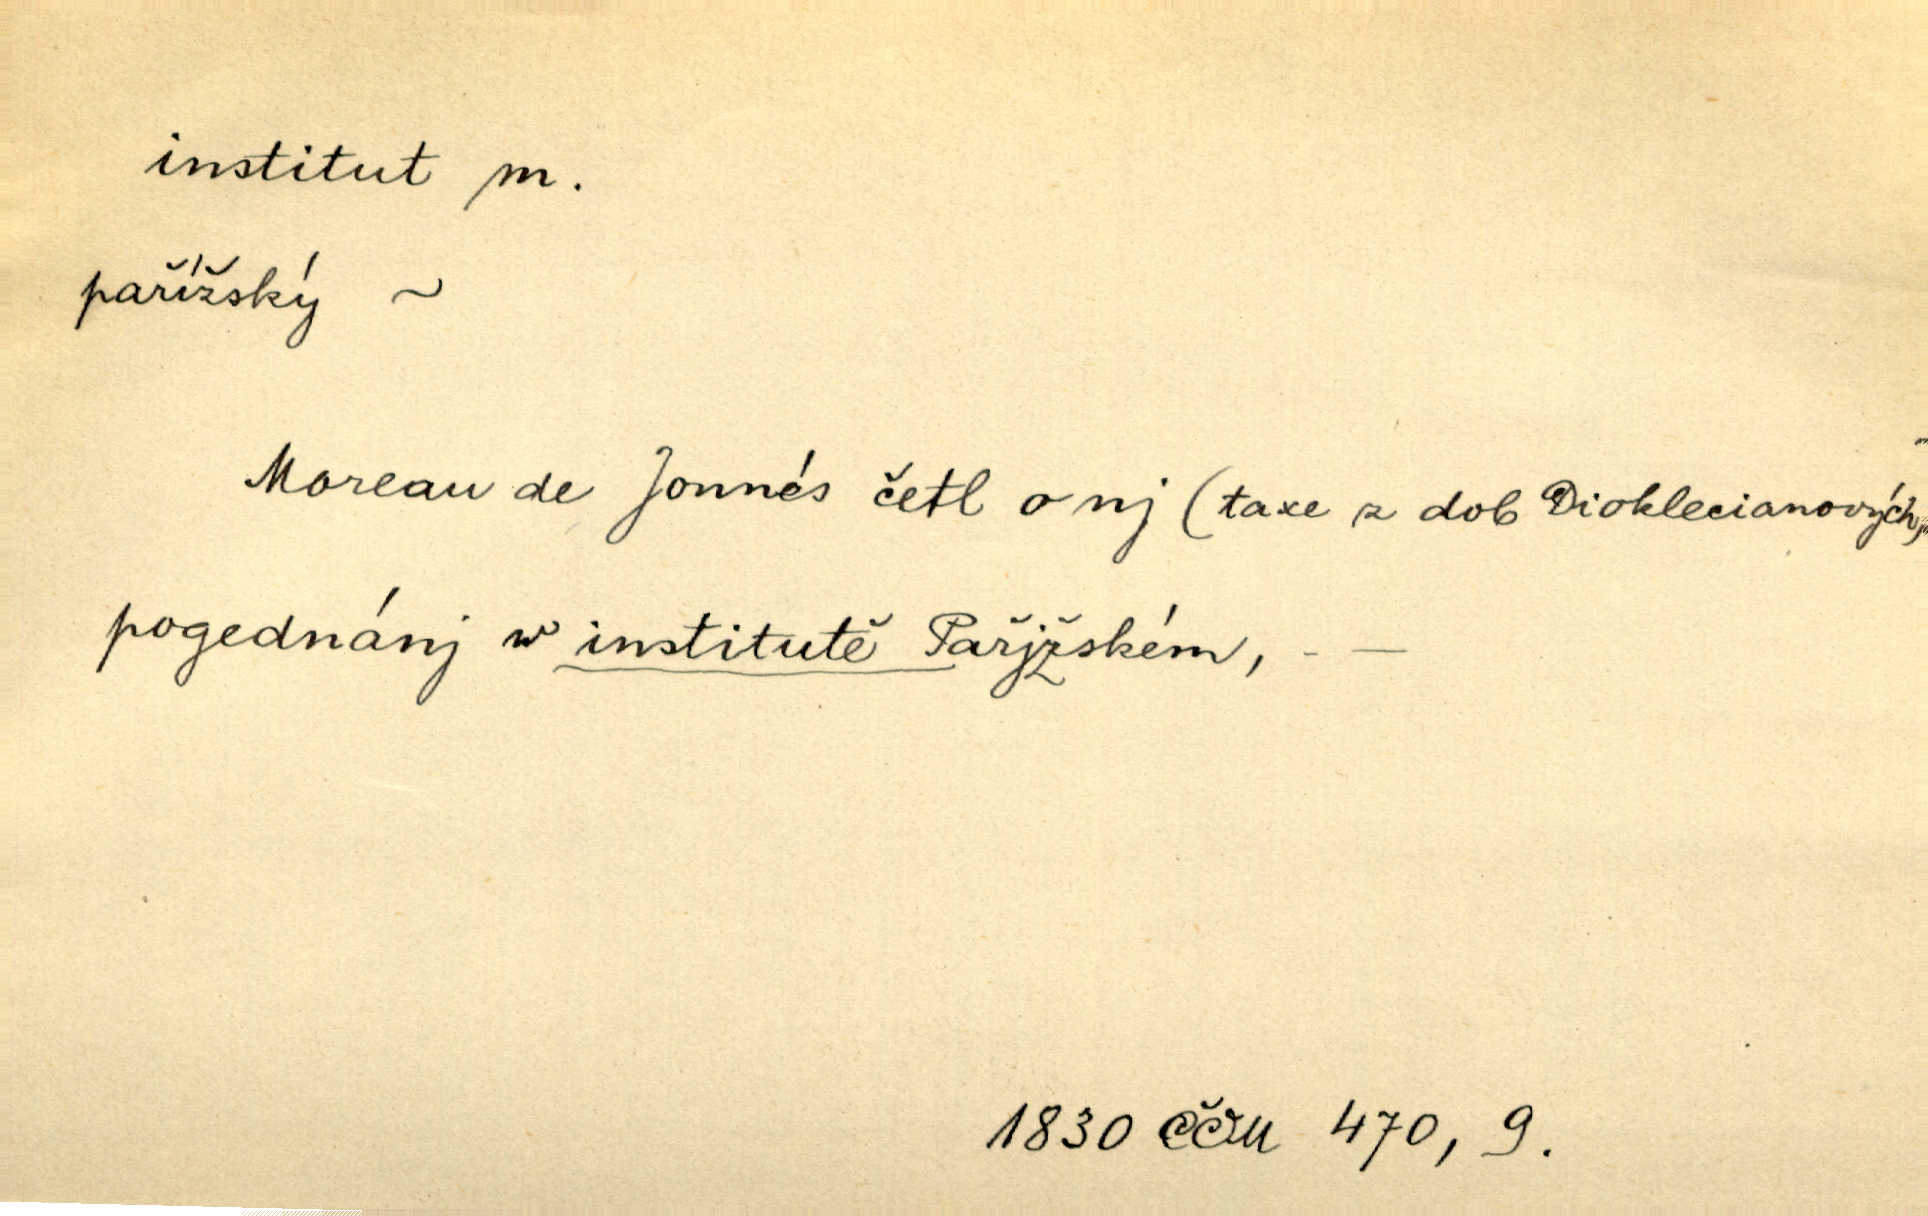 institut m.
pařížský ~
Moreau de Jonnés četl o nj (taxe z dob Dioklecianových)
pogednánj w institutě Pařjžském, - —
1830 ČČM 470, 9.